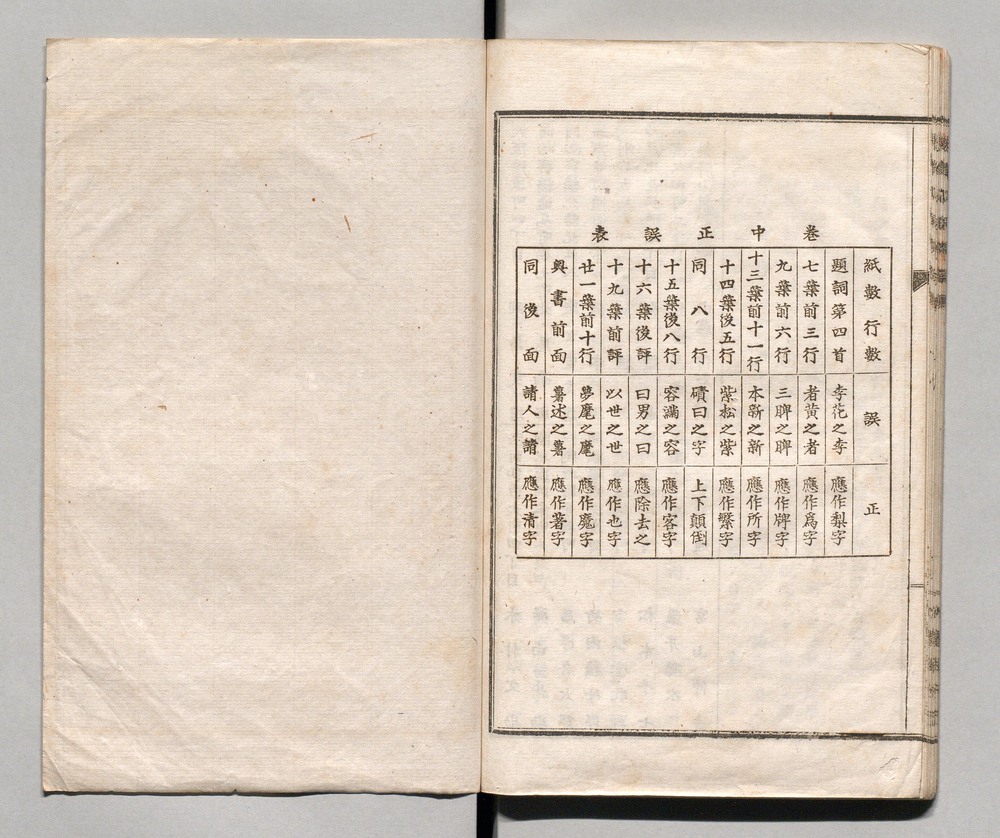 卷中正誤表
紙數行數 誤 正
題詞第四首 李花之李 應作梨字
七葉前三行 者黄之者 應作爲字
九葉前六行 三睥之睥 應作牌字
十三葉前十一行 本新之新 應作所字
十四葉後五行 紫松之紫 應作繁字
同八行 磧曰之字 上下顛倒
十五葉後八行 容滿之容 應作客字
十六葉後評 曰男之曰 應除去之
十九葉前評 以世之世 應作也字
廿一葉前十行 夢麾之麾 應作魔字
奥書前面 薯述之薯 應作著字
同後面 諸人之諸 應作清字